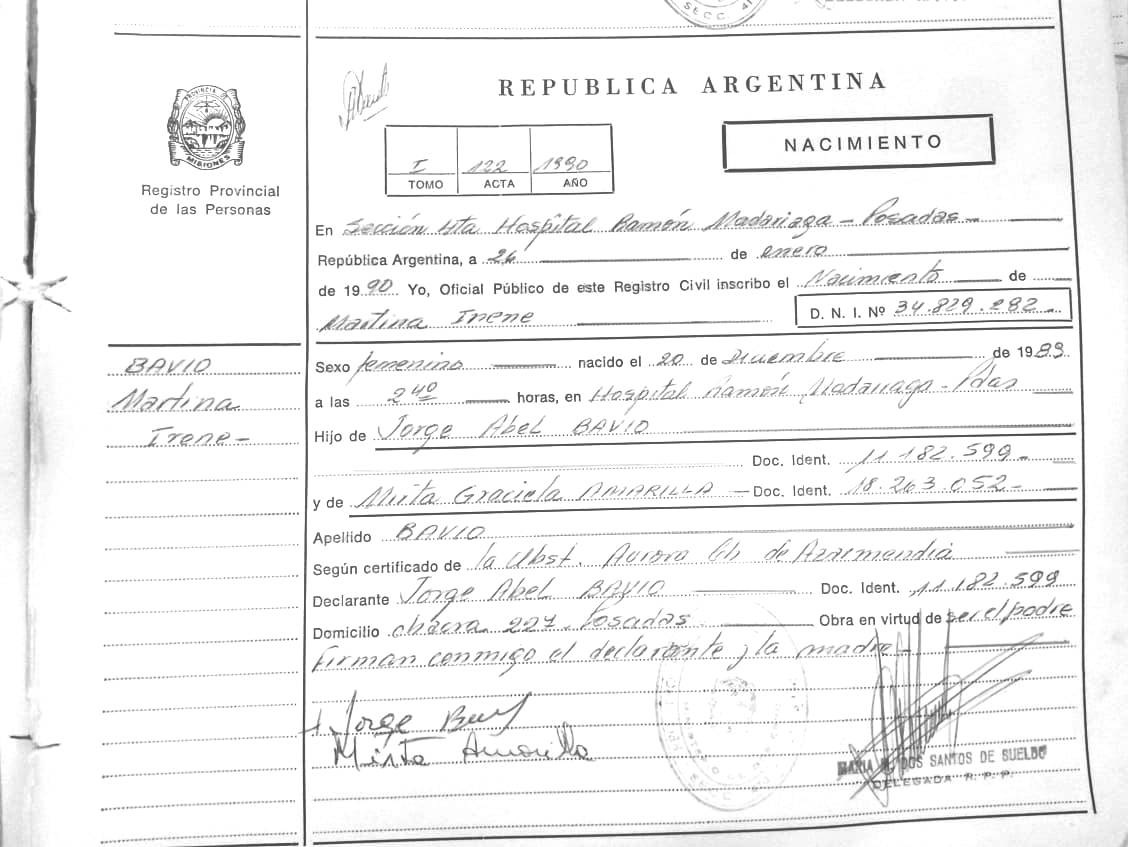 SECC. 4
PROVINCIA DE
MISIONES
Registro Provincial
de las Personas
REPUBLICA ARGENTINA
NACIMIENTO
I 122 1990
TOMO ACTA AÑO
En Sección 4ta Hospital Ramón Madariaga - Posadas -
República Argentina, a 26 de enero
de 1990 Yo, Oficial Público de este Registro Civil inscribo el Nacimiento de
Martina Irene D. N. I. Nº 34.829.282
BAVIO
Martina
Irene -
Sexo femenino nacido el 20 de Diciembre de 1989
a las 2 40 horas, en Hospital Ramón Madariaga - Pdas
Hijo de Jorge Abel BAVIO
Doc. Ident. 11.182.599 -
y de Mirta Graciela AMARILLA - Doc. Ident. 18.263.052 -
Apellido BAVIO
Según certificado de la Obst. Aurora de Azarmendia
Declarante Jorge Abel BAVIO Doc. Ident. 11.182.599
Domicilio chacra 227 - Posadas Obra en virtud de ser el padre
Firman conmigo el declarante y la madre -
Jorge
Mirta Amarilla
MARIA DOS SANTOS DE SUELDO
DELEGADA R. P. P.